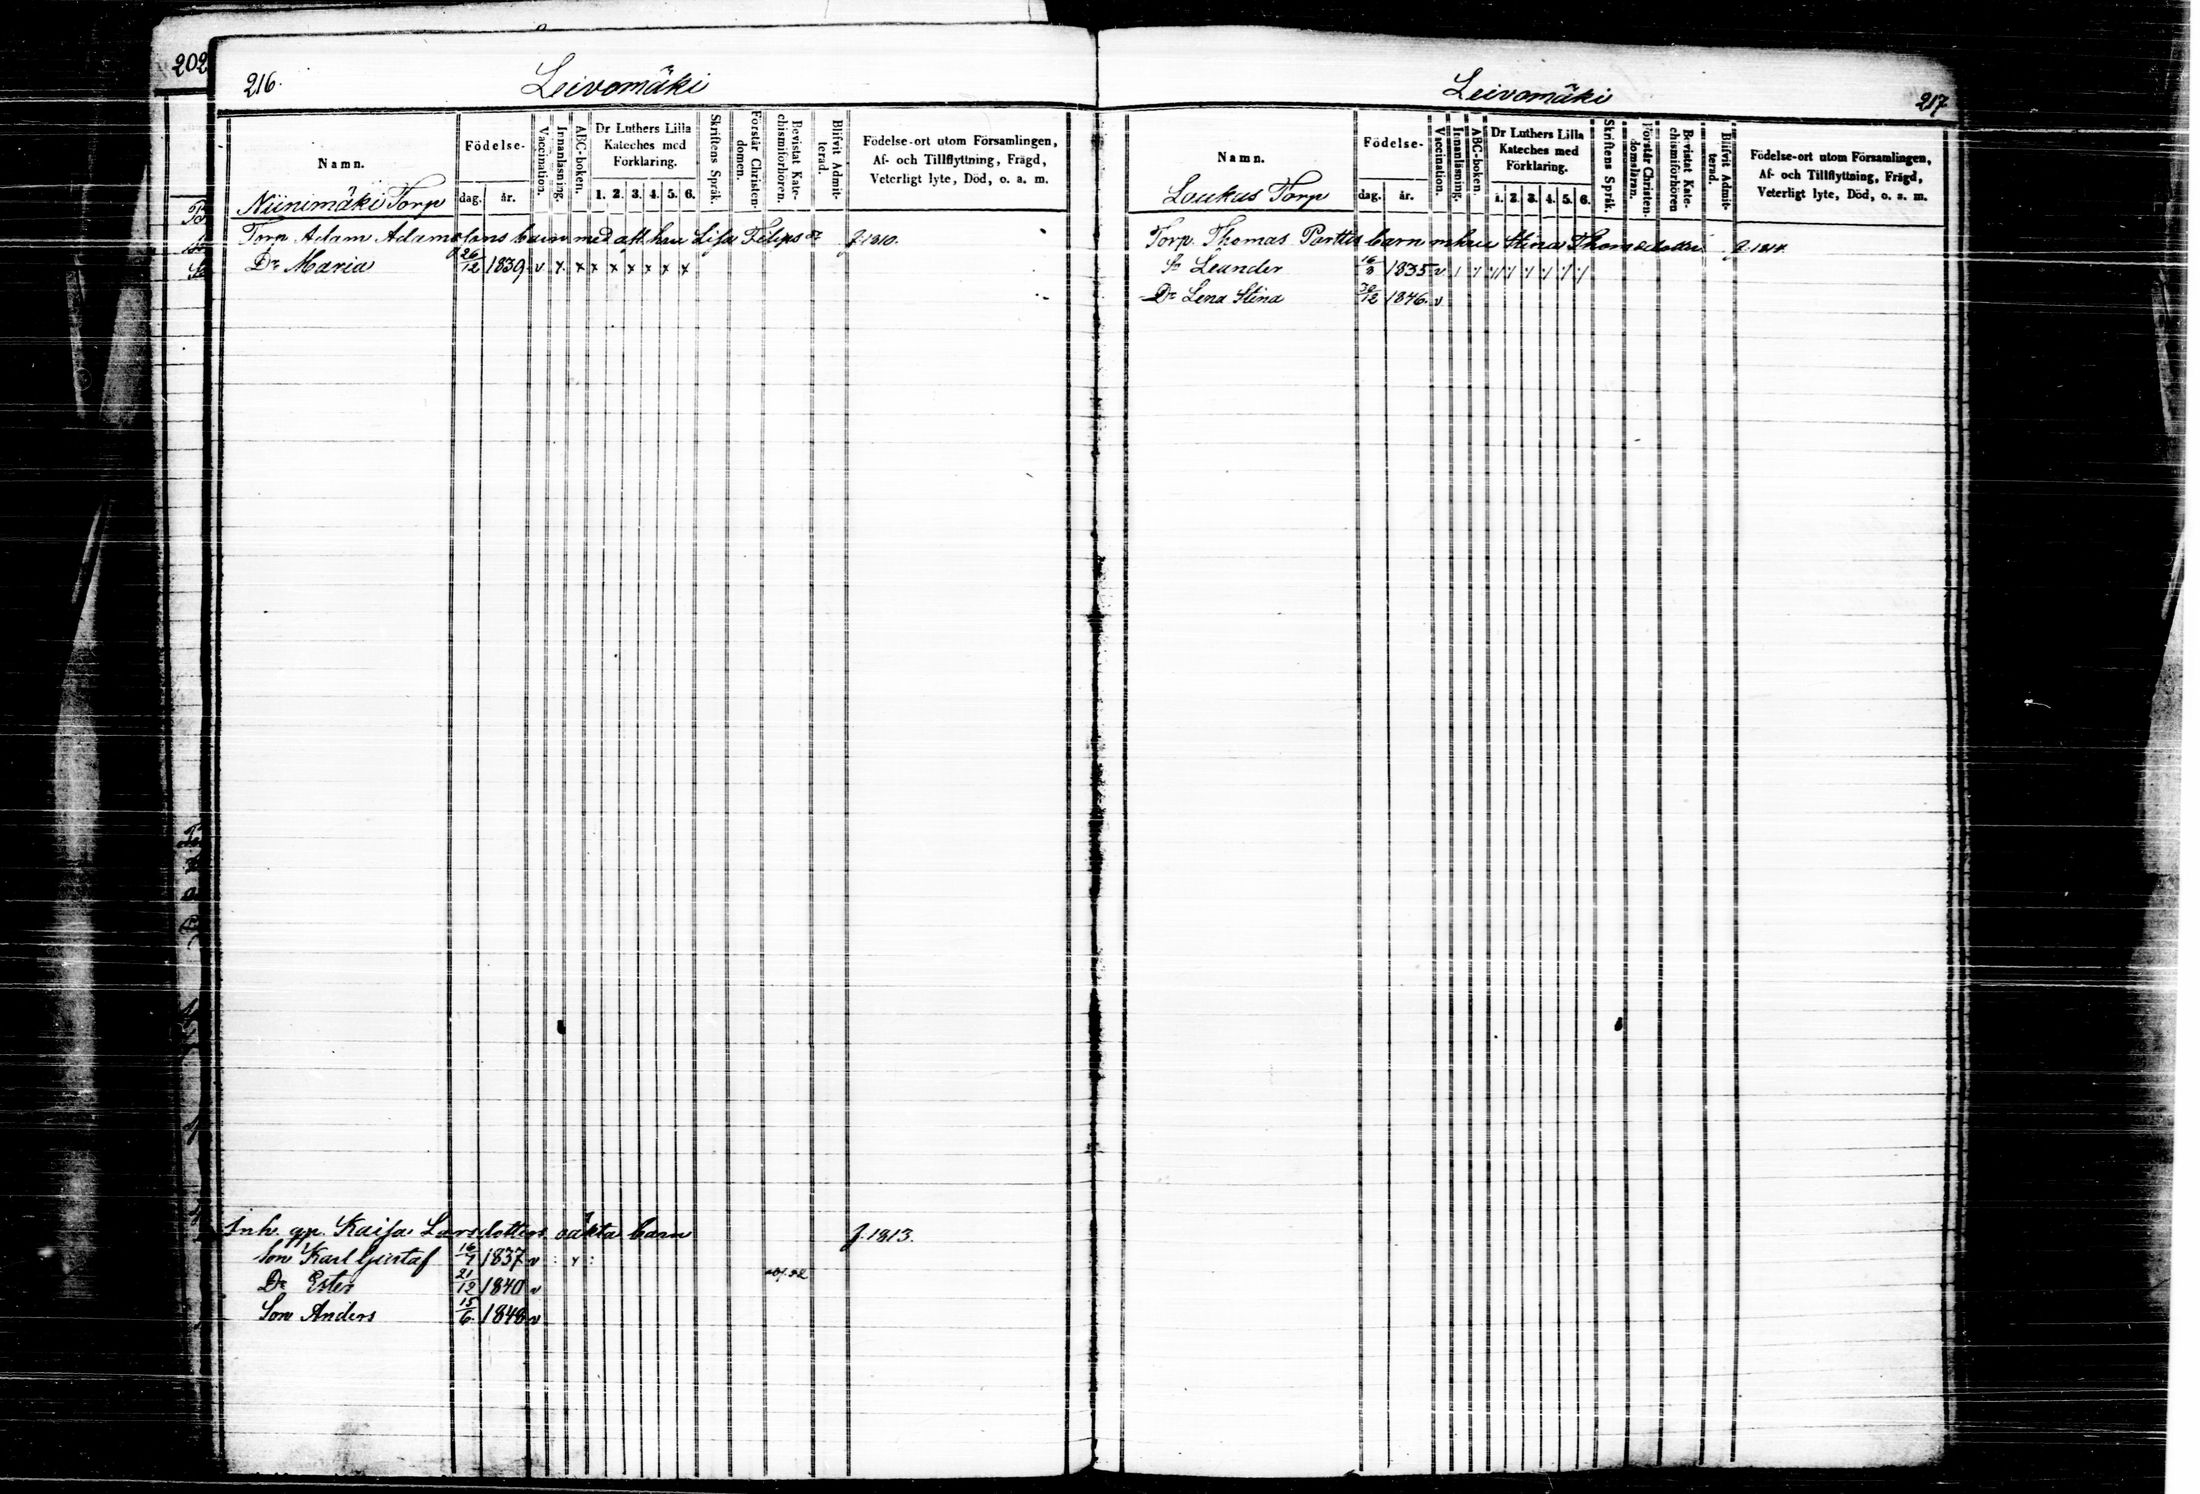 202
216.
Leivomäki
Namn.
Födelse-
dag.
år.
Vaccination.
Innanläsning.
ABC-boken.
Dr Luthers Lilla
Kateches med
Förklaring.
1. 2. 3. 4. 5. 6.
Skriftens Språk.
Förstår Christen-
domen.
Bevistat Kate-
chismiförhören.
Blifvit Admit-
terad.
Födelse-ort utom Församlingen,
Af- och Tillflyttning, Frägd,
Veterligt lyte, Död, o. a. m.
Niinimäki Torp
Torp. Adam Adamssons barn med afl. hu Lisa Filips dr f. 1810.
Dr Maria 26/12 1839 v x x x x x x x x
Inh. qp. Kaisa Larsdotters oäkta barn f. 1813.
Son Karl Gustaf 16/7 1837 v
Dr Ester 21/12 1840 v
Son Anders 15/6 1848 v
Leivomäki
217
Namn.
Födelse-
dag.
år.
Vaccination.
Innanläsning.
ABC-boken.
Dr Luthers Lilla
Kateches med
Förklaring.
1. 2. 3. 4. 5. 6.
Skriftens Språk.
Förstår Christen-
domsläran.
Bevistat Kate-
chismiförhören
Blifvit Admit-
terad.
Födelse-ort utom Församlingen,
Af- och Tillflyttning, Frägd,
Veterligt lyte, Död, o. a. m.
Loukus Torp
Torp. Thomas Parttis barn m hu Stina Thomasdotter
Leander 1835 v
Dr Lena Stina 30/12 1846 v